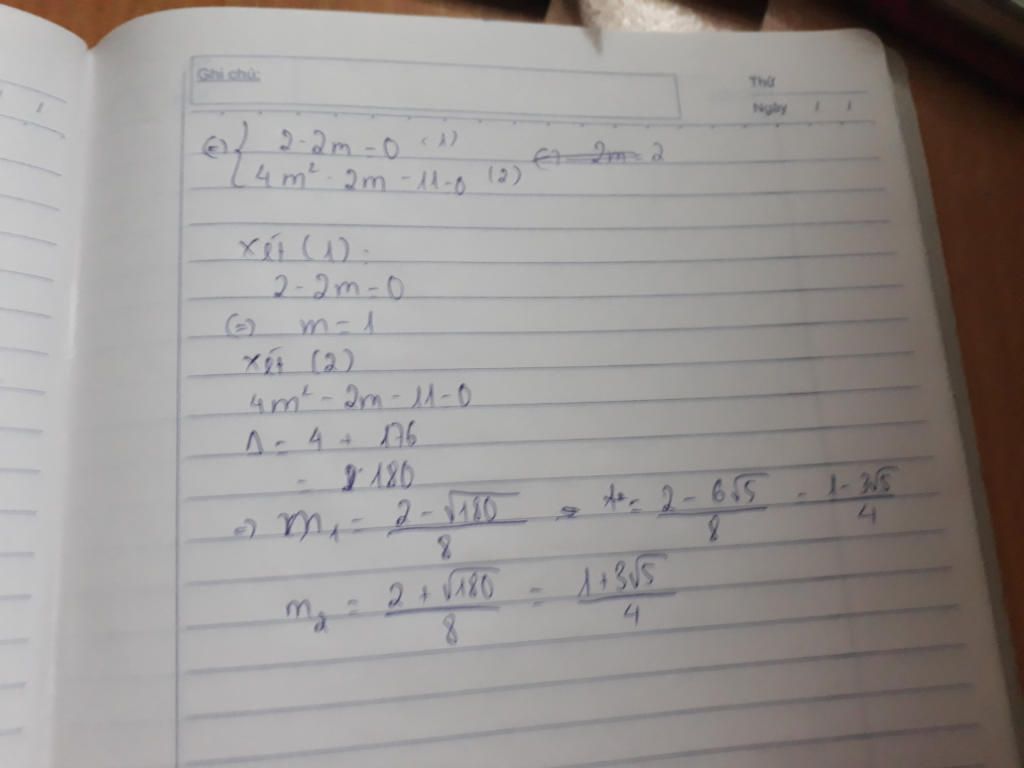 Ghi chú:
Thứ
Ngày / /
(=) { 2 - 2m = 0 (1) (=) 2m = 2
4m² - 2m - 11 = 0 (2)
Xét (1):
2 - 2m = 0
(=) m = 1
xét (2)
4m² - 2m - 11 = 0
Δ = 4 + 176
= 180
=> m₁ = (2 - √180)/8 = (2 - 6√5)/8 = (1 - 3√5)/4
m₂ = (2 + √180)/8 = (1 + 3√5)/4